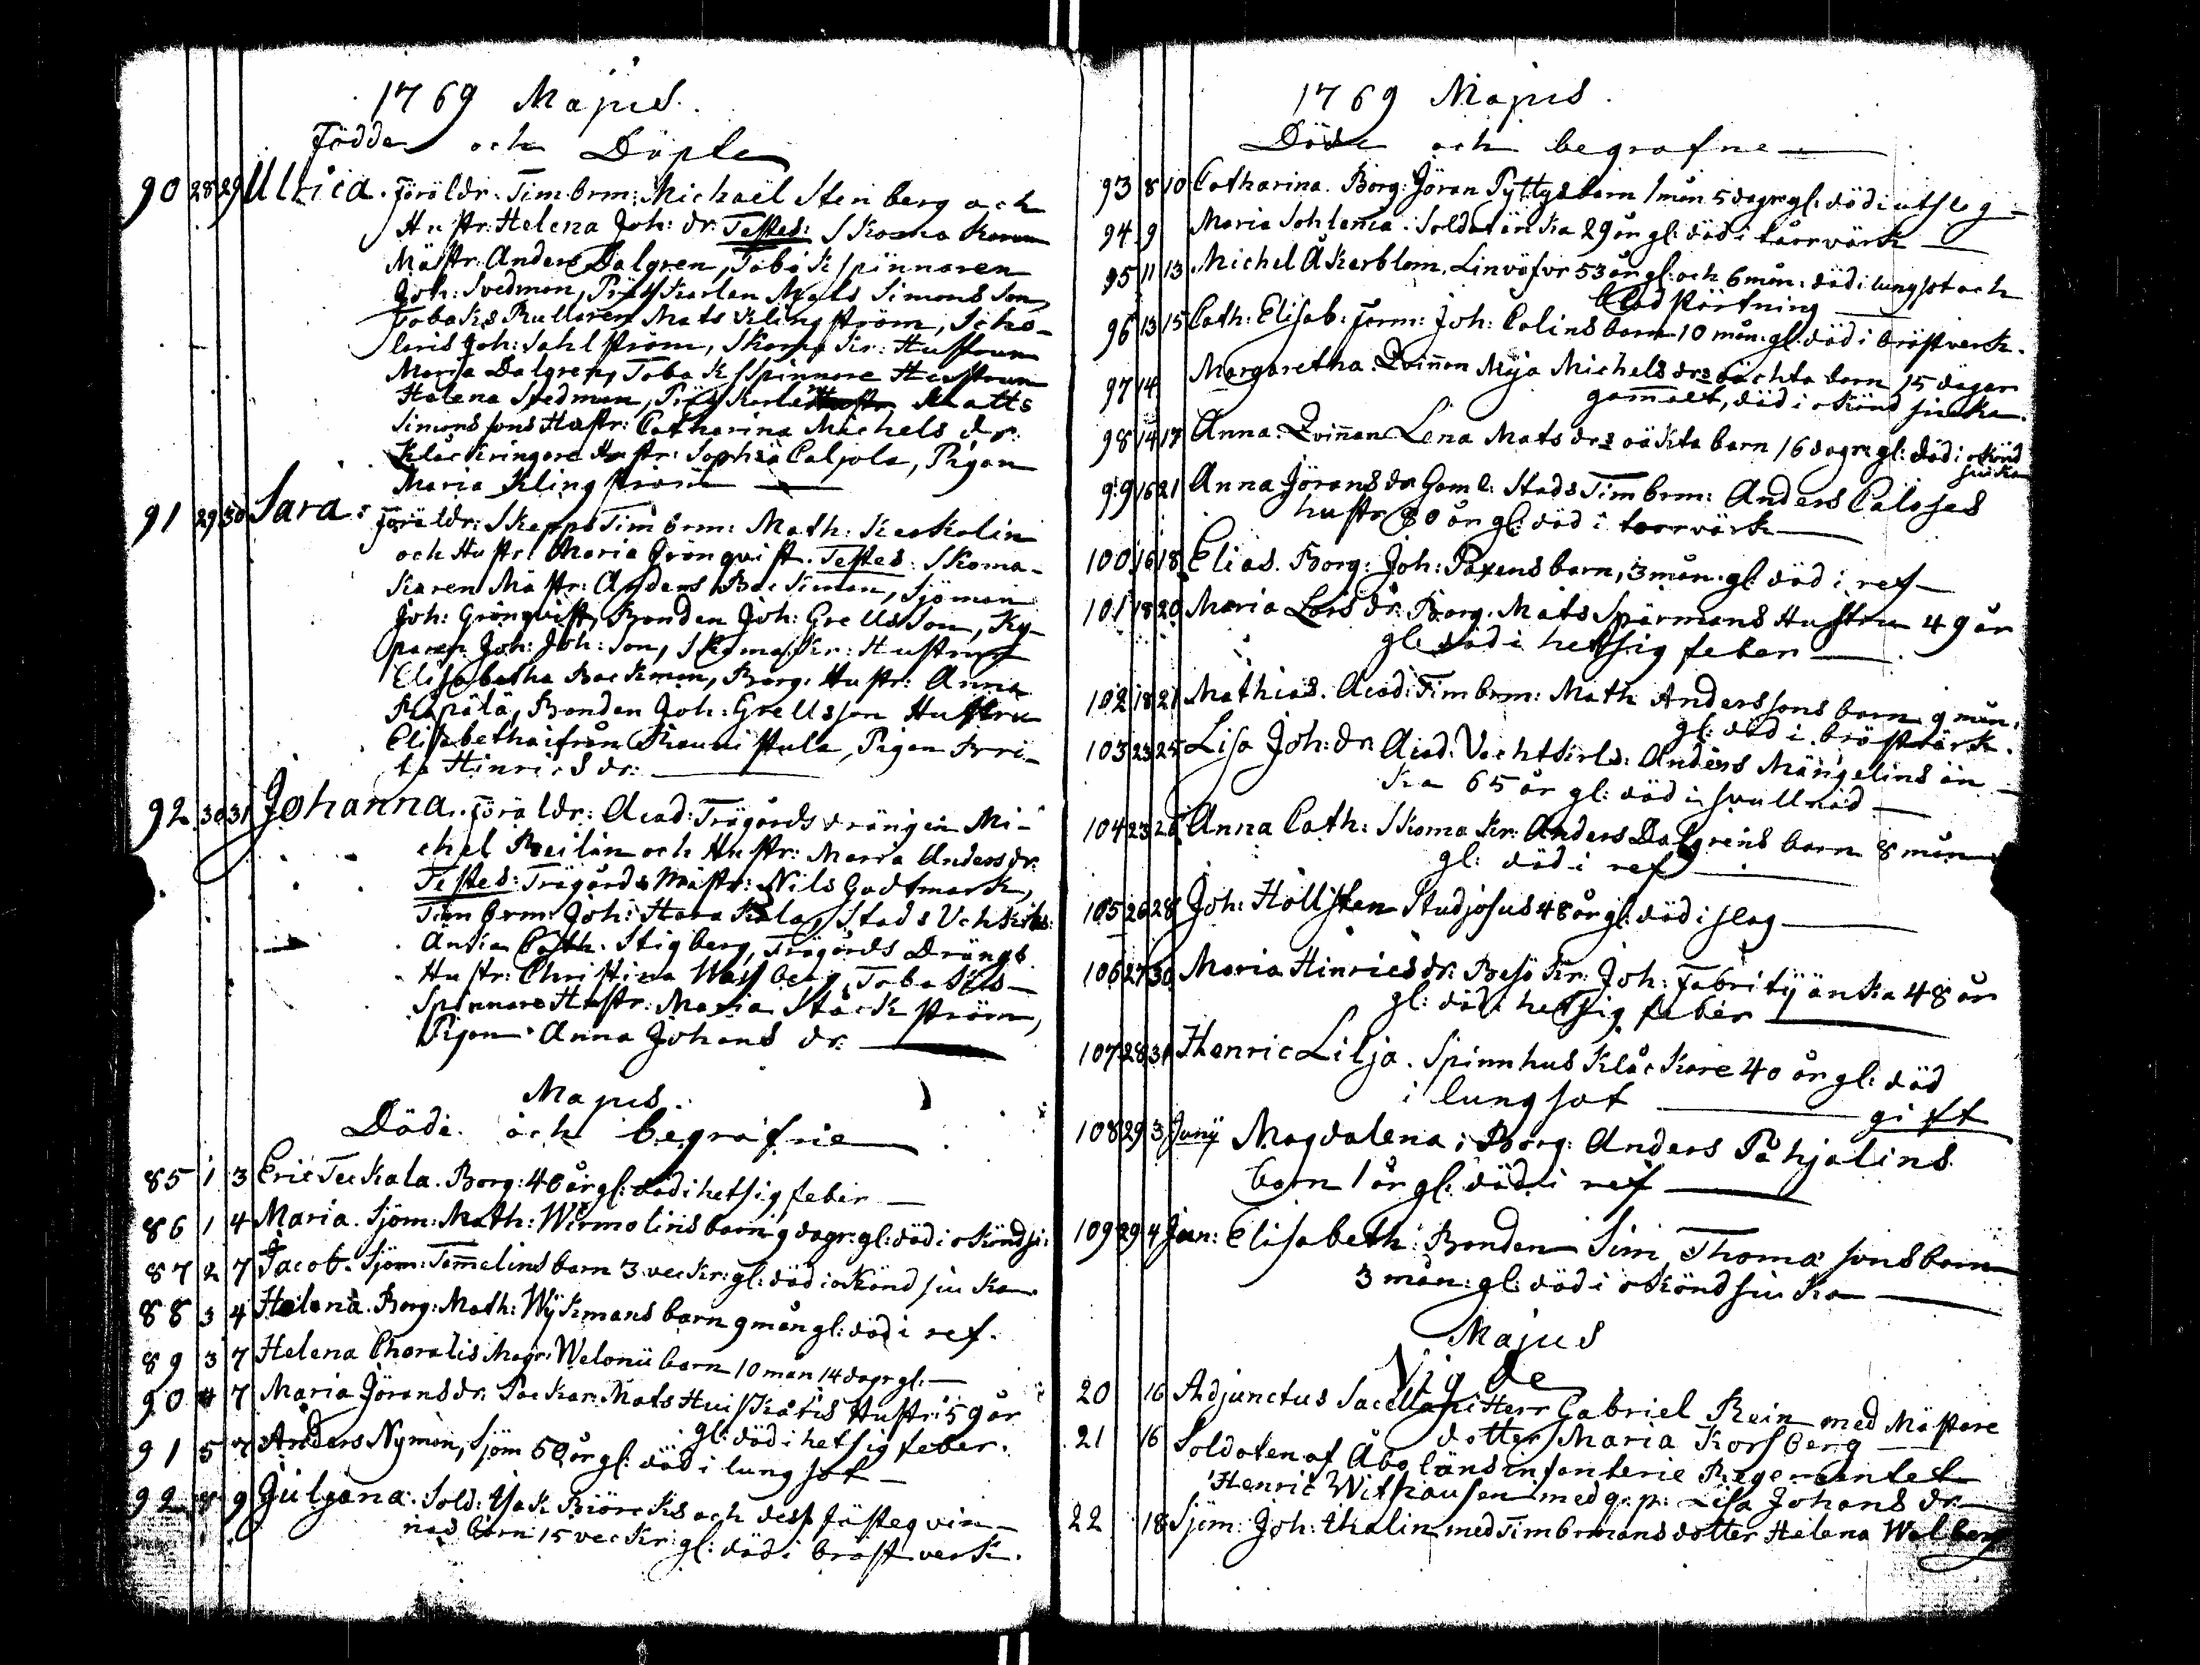 1769 Majus.
Födde och Döpte
90 28 29 Ulrica. Föräldr. Timbrm: Michaël Stenberg och
Hustr: Helena Joh: dr: Testes: Skoma karen
Mästr: Anders Dalgren, Tobakspinnaren
Joh: Svedman, Mats Simons Son,
Tobaks Rullaren Mats Klingström, Scho-
laris Joh: Sahlström, Skomakr: Hustrun
Maria Dalgren, Tobakspinnare Hustrun
Helena Svedman, Matts
Simons sons Hustr: Catharina Michels dr:
Klåckringare Hustr: Sophia Caljola, Pigan
Maria Klingström
91 29 30 Sara: Föräldr: Skepps Timbrm: Math: Keskolin
och Hustr: Maria Grönqvist. Testes: Skoma-
karen Mästr: Anders Backman, Sjöman
Joh: Grönqvist, Bonden Joh: Grellsson, Ky-
paren Joh: Joh: Son, Skomakr: Hustrun
Elisabetha Backman, Borg. Hustr: Anna
Bonden Joh: Grellsson Hustru
Elisabetha ifrån Pigan Bri-
ta Hinrics dr:
92 30 31 Johanna. Föräldr: Acad: Trägårds drängen Mi-
chel Reilin och Hustr: Maria Anders dr:
Testes: Trägårds Mästr: Nils Gadtmark,
Timbrm: Joh: Harakala, Stads
Änkia Cath. Stigberg, Trägårds Drängs
Hustr: Christina Tobaks-
Spinnare Hustr: Maria Stackström,
Pigan Anna Johans dr:
Majus.
Döde och begrafne
85 1 3 Eric Teckala. Borg: 40 år gl: död i hetsig feber
86 1 4 Maria. Sjöm: Math: Wirmolins barn 9 dagr: gl: död i okönd si:
87 2 7 Jacob. Sjöm: Tammelins barn 3 veckr: gl: död i okönd siuka
88 3 4 Helena. Borg: Math: Wÿkmans barn 9 mån gl: död i ref.
89 3 7 Helena Choralis Magr: Welonii barn 10 mån 14 dagr gl:
90 4 7 Maria Jörans dr. Mats Hustr: 59 år
gl: död i hetsig feber.
91 5 7 Anders Nyman, Sjöm 50 år gl: död i lungsot
92 8 9 Juliana. Sold: Isak Biörcks och dess fästeqvin-
nas barn 15 veckr: gl: död i bröstverk.
1769 Majus.
Döde och begrafne
93 8 10 Catharina. Borg: Jöran Pyttys barn 1 mån 5 dagr gl: död i utslog
94 9 Maria Sohlenia. Soldat änka 29 år gl: död i tåorvärk
95 11 13 Michel Åkerblom, Linväfvr 53 år gl: och 6 mån: död i lungsot och
blod störtning
96 13 15 Cath: Elisab: Joh: Colins barn 10 mån: gl: död i bröstverk.
97 14 Margaretha Qvinnan Maja Michels drs oächta barn 15 dagar
gammalt, död i okönd siuka.
98 14 17 Anna: Qvinnan Lena Mats drs oäkta barn 16 dagr gl: död i okönd
siuka
99 16 21 Anna Jörans dr Gaml: Stads Timbrm: Anders
hustr 80 år gl: död i torrvärk
100 16 18 Elias. Borg: Joh: Paxens barn, 3 mån: gl: död i ref
101 18 20 Maria Lars dr: Borg: Mats Spärmans Hustru 49 år
gl: död i hetsig feber
102 18 21 Mathias. Acad: Timbrm: Math Anderssons barn 9 mån:
gl: död i bröstvärk.
103 23 25 Lisa Joh: dr Acad: Vachtkrls: Anders Mängelins än-
ka 65 år gl: död i svullnad
104 23 28 Anna Cath: Skomakr: Anders Dalgrens barn 8 mån
gl: död i ref
105 26 28 Joh: Hollsten Studjosus 48 år gl: död i slag
106 27 30 Maria Hinrics dr: Besökr: Joh: Fabritÿ änka 48 år
gl: död i hetsig feber
107 28 31 Henric Lilja. Spinnhus Klåckare 40 år gl: död
i lungsot gift
108 29 3 Junÿ Magdalena: Borg: Anders Påhjalins
barn 1 år gl: död i ref
109 29 4 Jun: Elisabeth: Bonden Sim Thomæ sons barn
3 mån: gl: död i okönd siuka
Majus
Vigde
20 16 Adjunctus Sacellani Herr Gabriel Rein med Mästare
dotter Maria Korsberg
21 16 Soldaten af Åbo läns infanterie Regementet
Henric Withausen med q. p: Lisa Johans dr
22 18 Sjöm: Joh: thalin med Timbrmans dotter Helena Walberg